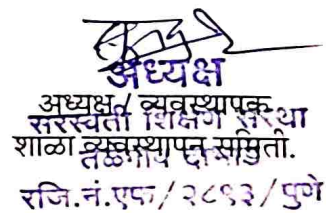 अध्यक्ष
अध्यक्ष / व्यवस्थापक
सरस्वती शिक्षण संस्था
शाळा व्यवस्थापन समिती.
तळेगाव
रजि.नं.एफ/२८९३/पुणे